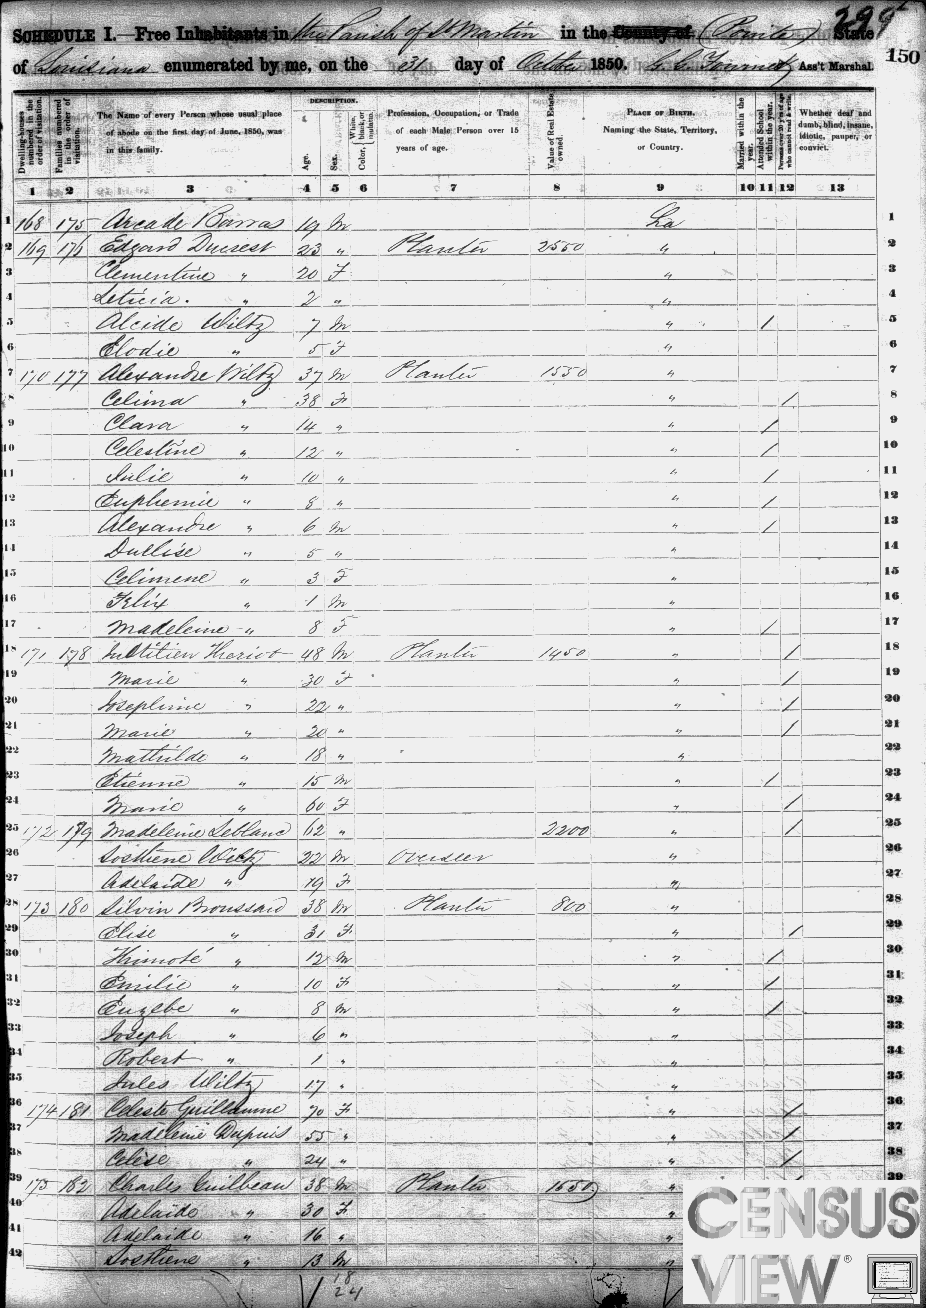 299
SCHEDULE I.—Free Inhabitants in the Parish of St Martin in the County of (Pointe) State
of Louisiana enumerated by me, on the 31 day of October 1850. Ass't Marshal. 150
Dwelling-houses numbered in the order of visitation. Families numbered in the order of visitation. The Name of every Person whose usual place of abode on the first day of June, 1850, was in this family. DESCRIPTION. Age. Sex. Color, White, black, or mulatto. Profession, Occupation, or Trade of each Male Person over 15 years of age. Value of Real Estate owned. PLACE OF BIRTH. Naming the State, Territory, or Country. Married within the year. Attended School within the year. Persons over 20 y'rs of age who cannot read & write. Whether deaf and dumb, blind, insane, idiotic, pauper, or convict.
1 2 3 4 5 6 7 8 9 10 11 12 13
1 168 175 Arcade Barras 19 M La 1
2 169 176 Edgard Ducrest 23 " Planter 2550 " 2
3 Clementine " 20 F " 3
4 Leticia " 2 " " 4
5 Alcide Wiltz 7 M " / 5
6 Elodie " 5 F " 6
7 170 177 Alexandre Wiltz 37 M Planter 1550 " 7
8 Celima " 38 F " / 8
9 Clara " 14 " " / 9
10 Celestine " 12 " " / 10
11 Julie " 10 " " / 11
12 Euphemie " 8 " " / 12
13 Alexandre " 6 M " / 13
14 Dullise " 5 " " 14
15 Celimene " 3 F " 15
16 Felix " 1 M " 16
17 Madeleine " 8 F " / 17
18 171 178 48 M Planter 1450 " / 18
19 Marie " 30 F " / 19
20 Josephine " 22 " " / 20
21 Marie " 20 " " / 21
22 Mathilde " 18 " " 22
23 Etienne " 15 M " / 23
24 Marie " 60 F " / 24
25 172 179 Madeleine Leblanc 62 " 2200 " / 25
26 Sosthene Wiltz 22 M Overseer " 26
27 Adelaide " 19 F " 27
28 173 180 Silvin Broussard 38 M Planter 800 " 28
29 Elise " 31 F " / 29
30 " 12 M " / 30
31 Emilie " 10 F " / 31
32 Euzebe " 8 M " / 32
33 Joseph " 6 " " 33
34 Robert " 1 " " 34
35 Jules Wiltz 17 " " 35
36 174 181 Celeste Guillaume 70 F " / 36
37 Madeleine Dupuis 55 " " / 37
38 Celese " 24 " " / 38
39 175 182 Charles Guilbeau 38 M Planter 1550 " / 39
40 Adelaide " 30 F "
41 Adelaide " 16 " "
42 Sosthene " 13 M "
18
24
CENSUS
VIEW®